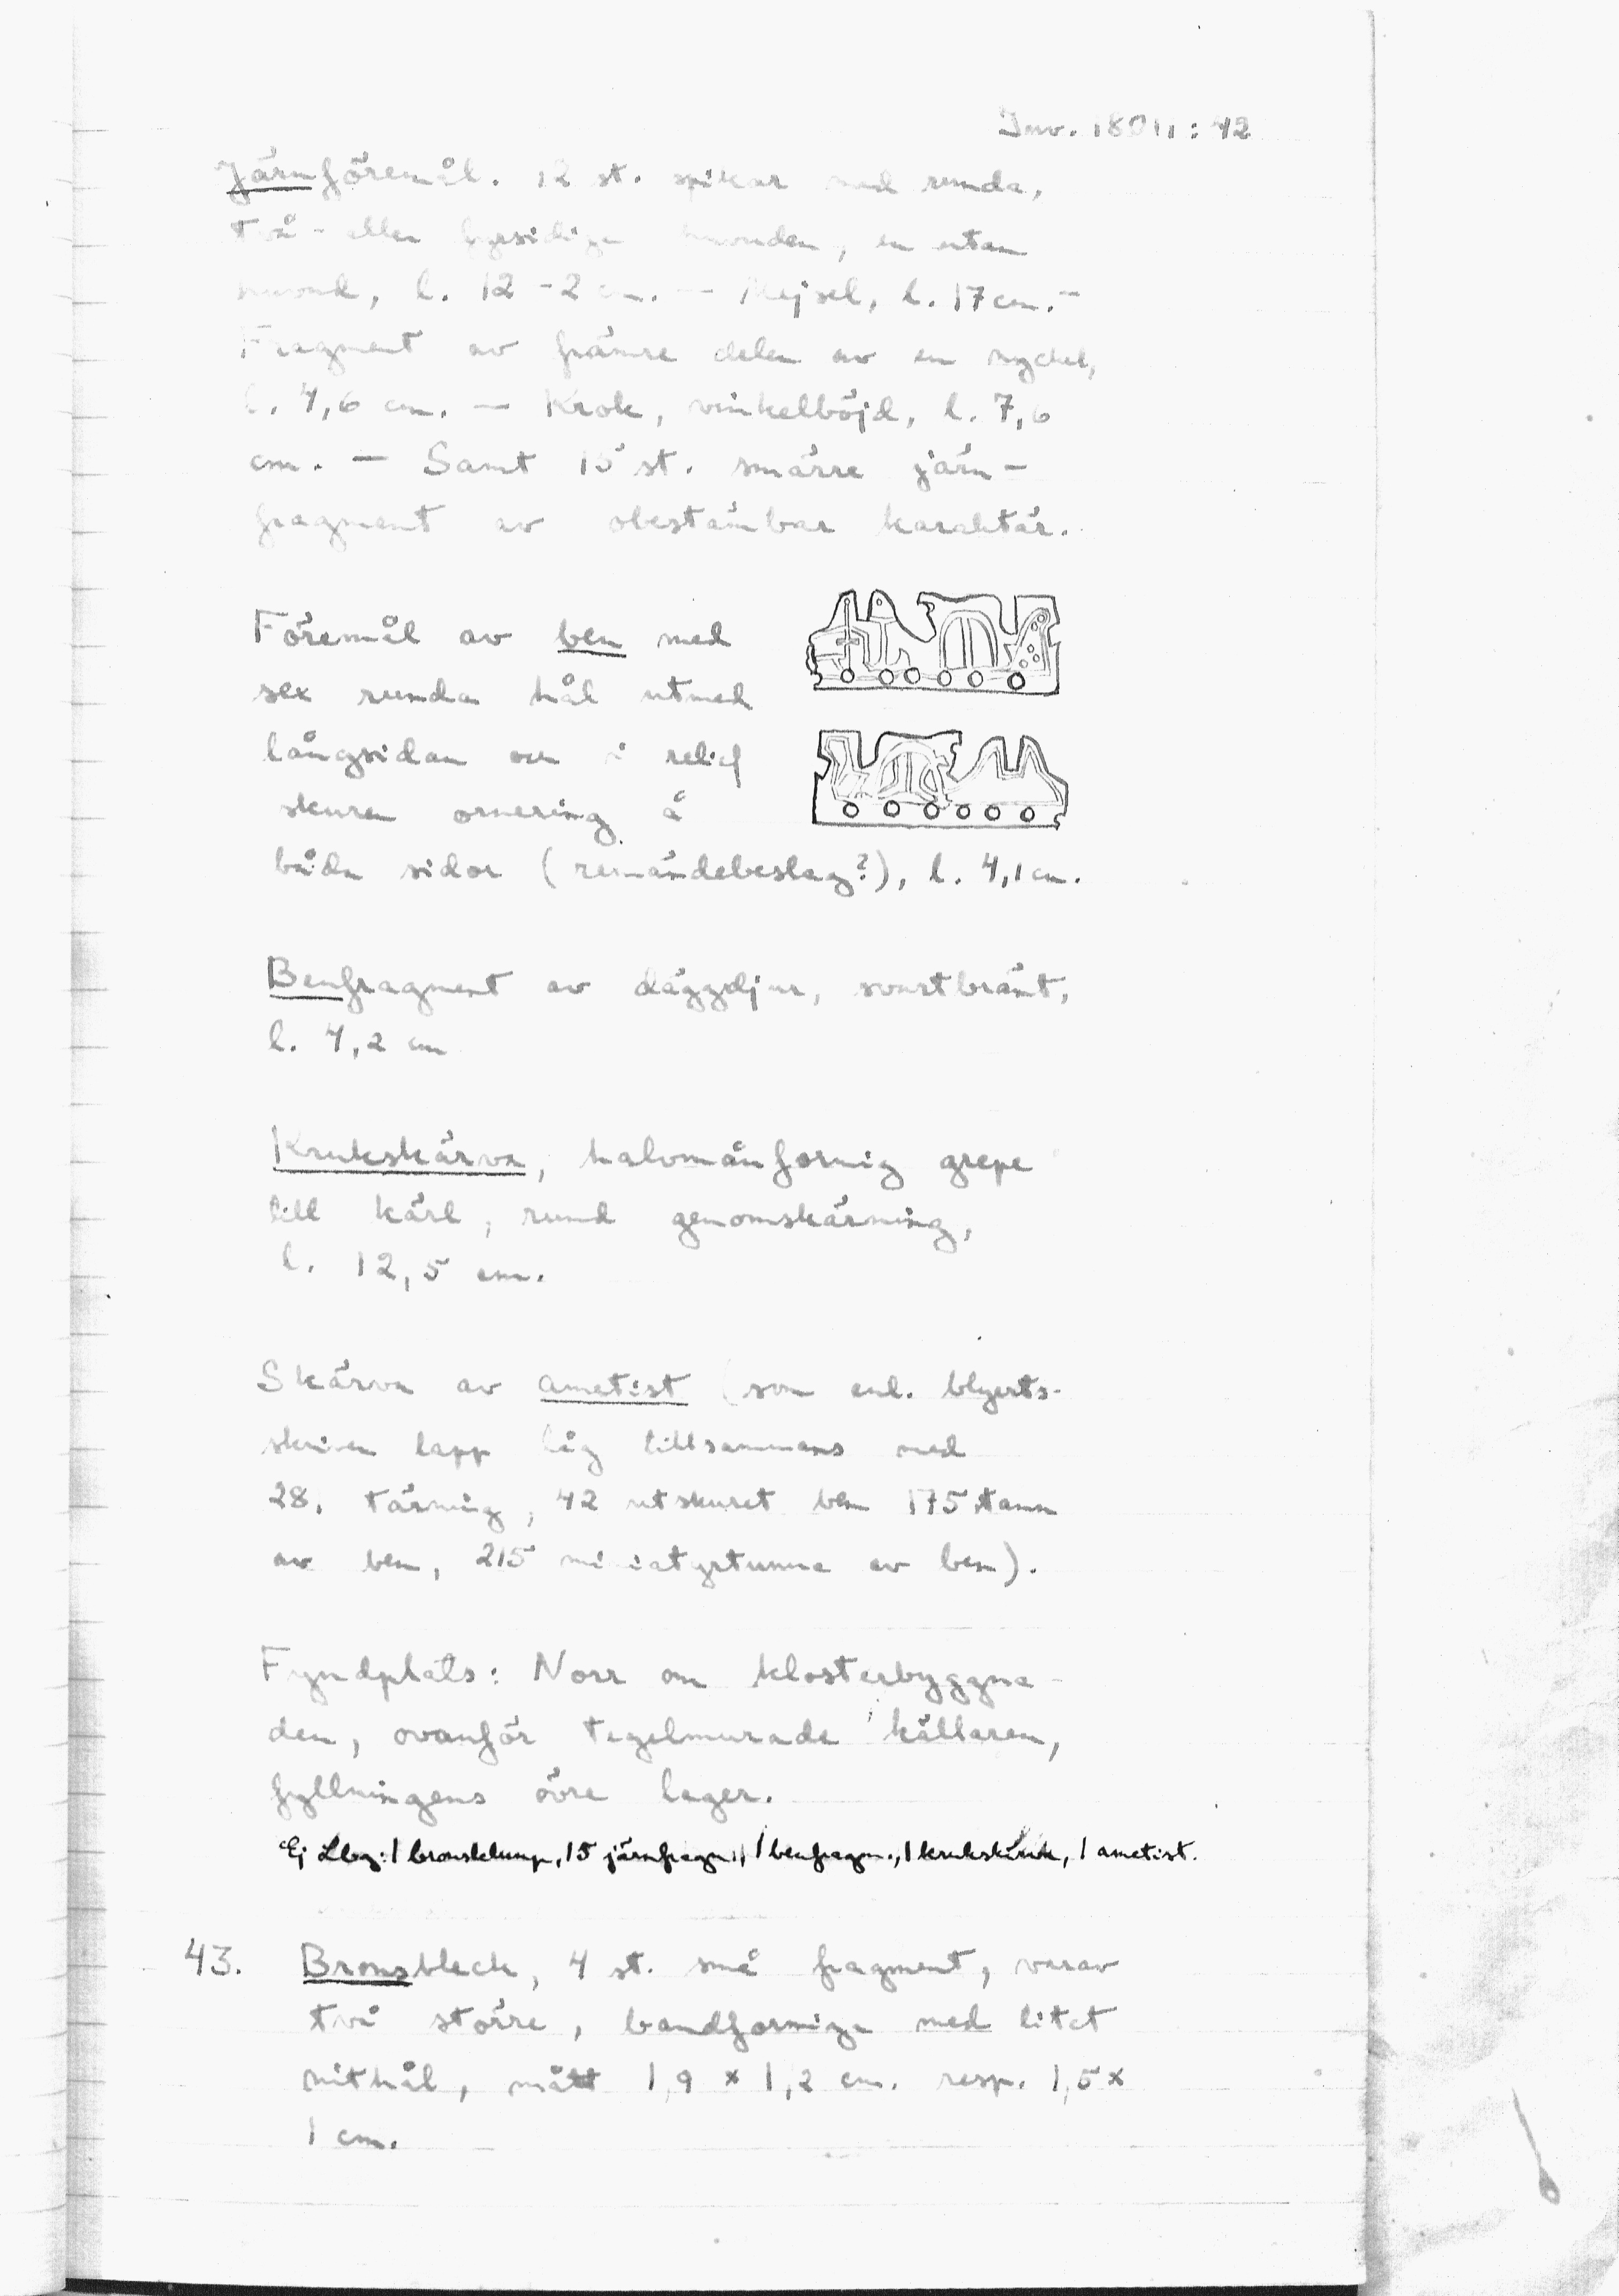 Inv. 18011:42
Järnföremål. 12 st. spikar med runda,
två- eller fyrsidiga huvuden, en utan
huvud, l. 12-2 cm. - Mejsel, l. 17 cm. -
Fragment av främre delen av en nyckel,
l. 4,6 cm. - Krok, vinkelböjd, l. 7,6
cm. - Samt 15 st. smärre järn-
fragment av obestämbar karaktär.
Föremål av ben med
sex runda hål utmed
långsidan och i relief
skuren ornering å
båda sidor (remändebeslag?), l. 4,1 cm.
Benfragment av däggdjur, svartbränt,
l. 4,2 cm
Krukskärva, halvmånformig grepe
till kärl, rund genomskärning,
l. 12,5 cm.
Skärva av ametist (som enl. blyerts-
skriven lapp låg tillsammans med
28. tärning, 42 utskuret ben 175
av ben, 215 miniatyrtunna av ben).
Fyndplats: Norr om klosterbyggna-
den, ovanför tegelmurade källaren,
fyllningens övre lager.
Ej 1 bronsklump, 15 järnfragm., 1 benfragm., 1 krukskärva, 1 ametist.
43. Bronsbleck, 4 st. små fragment, varav
två större, bandformiga med litet
nithål, mått 1,9 x 1,2 cm. resp. 1,5 x
1 cm.